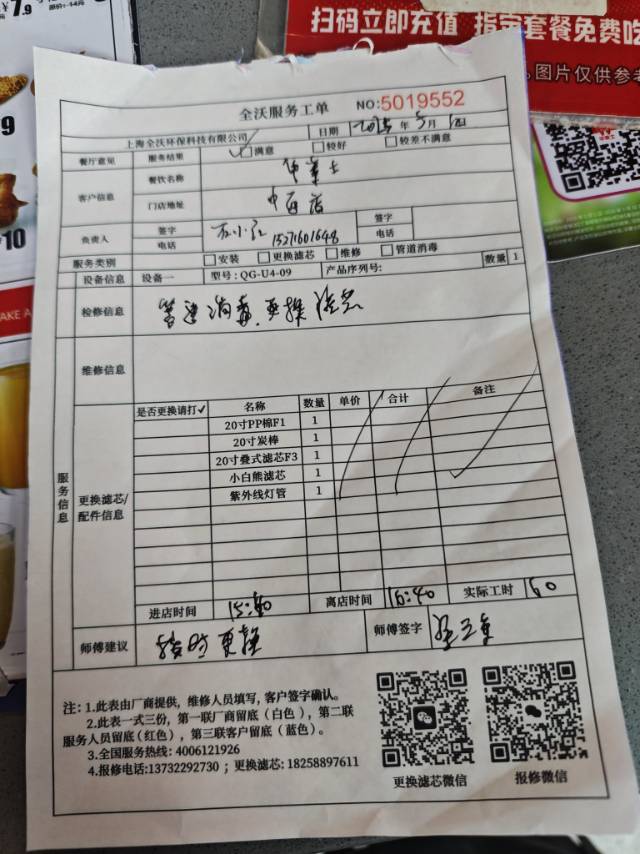 7.9
扫码立即充值 指定套餐免费吃
图片仅供参考
全沃服务工单 NO:5019552
上海全沃环保科技有限公司 日期 年 月
餐厅意见 服务结果 满意 较好 较差不满意
客户信息 餐饮名称 华莱士
门店地址
负责人 签字 签字
电话 15271601648 电话
服务类别 安装 更换滤芯 维修 管道消毒
设备信息 设备一 型号:QG-U4-09 产品序列号: 数量 1
检修信息 管道消毒.更换滤芯
维修信息
服务信息
更换滤芯/配件信息
是否更换请打✓ 名称 数量 单价 合计 备注
20寸PP棉F1 1
20寸炭棒 1
20寸叠式滤芯F3 1
小白熊滤芯 1
紫外线灯管 1
进店时间 15:40 离店时间 16:40 实际工时 60
师傅建议 按时更换 师傅签字
注:1.此表由厂商提供,维修人员填写,客户签字确认。
2.此表一式三份,第一联厂商留底(白色),第二联
服务人员留底(红色),第三联客户留底(蓝色)。
3.全国服务热线: 4006121926
4.报修电话:13732292730 ; 更换滤芯: 18258897611
更换滤芯微信 报修微信